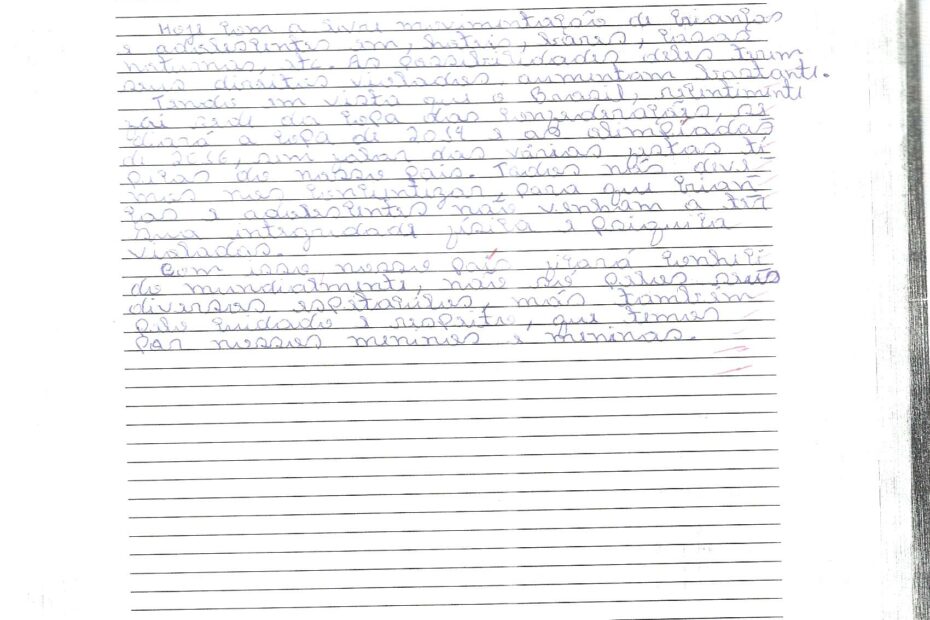 Hoje com a livre movimentação de crianças
e adolescentes em, hoteis, bares, casas
noturnas, etc. As possibilidades deles terem
seus direitos violados, aumentam bastante.
Tendo em vista que o Brasil, recentimente
foi sede da copa das confederações, se
diará a copa de 2014 e as olimpíadas
de 2016, sem falar das várias festas tí
picas do nosso país. Todos nós deve
mos nos concientizar, para que crian
ças e adolescentes não venham a ter
sua integridade física e psiquica
violadas.
Com isso, nosso país ficará conheci
do mundialmente, não só pelos seus
diversos espetaculos, mais também
pelo cuidado e respeito, que temos
por nossos meninos e meninas.